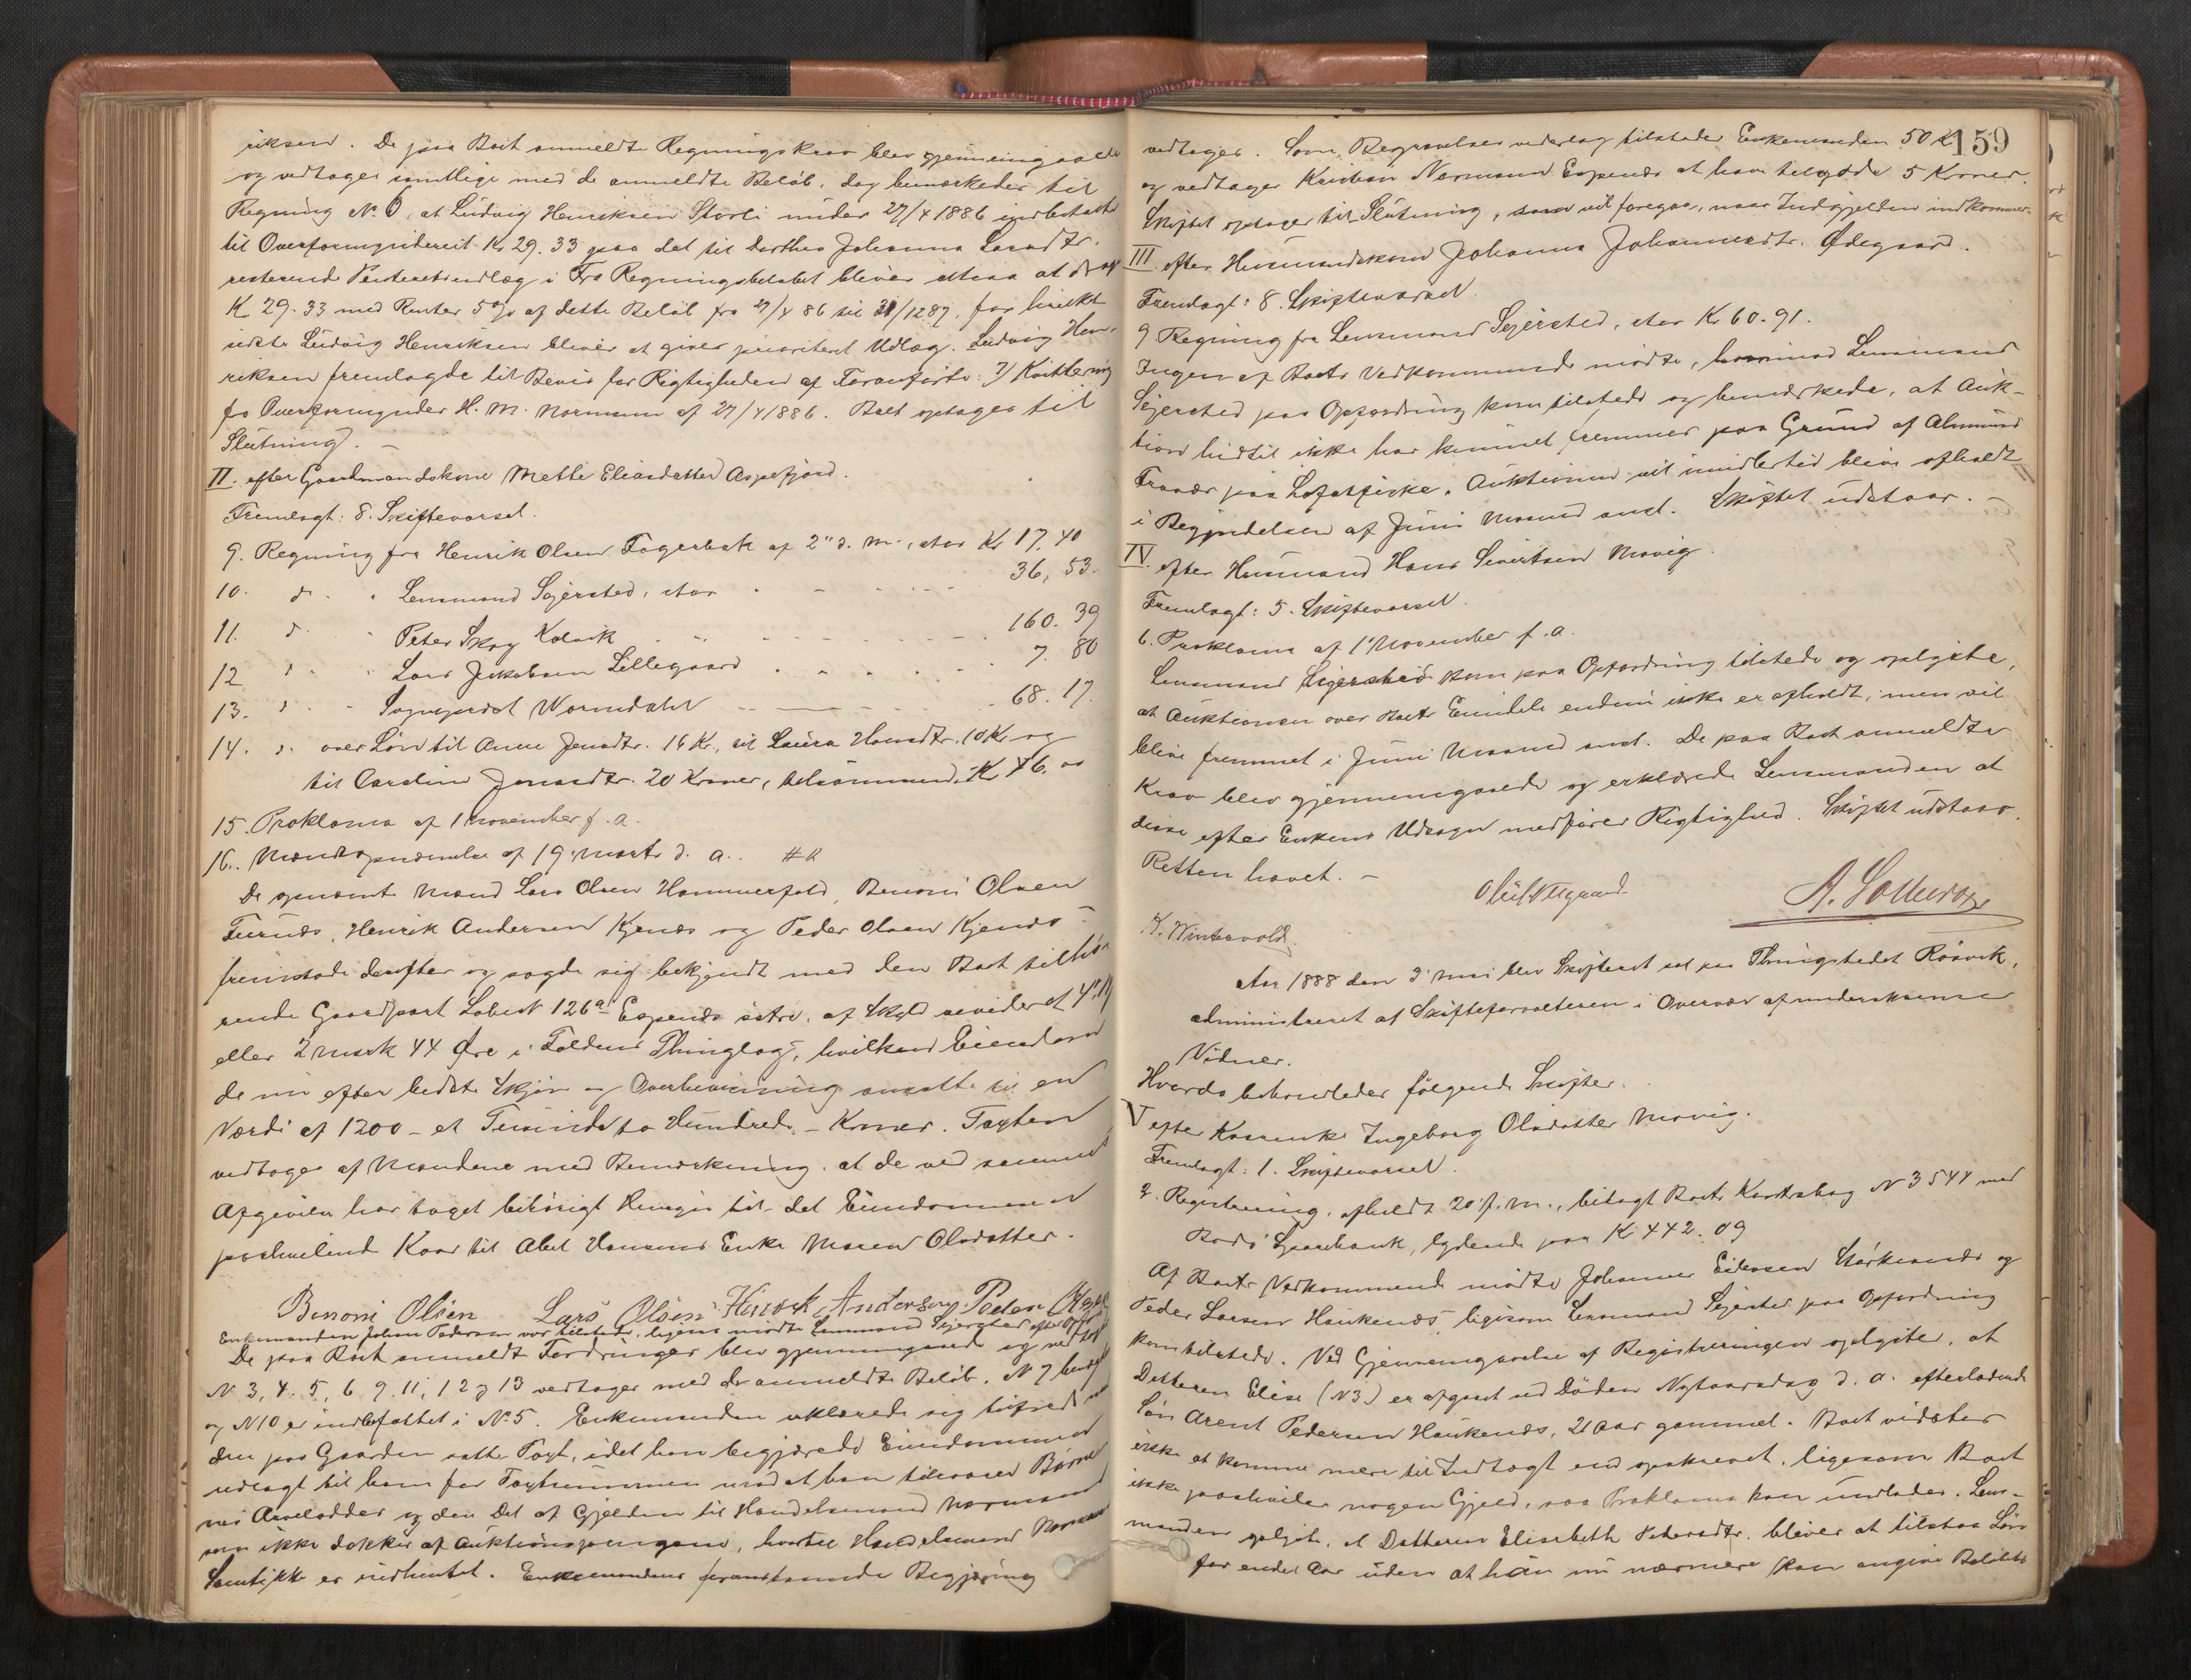 riksen. De paa Boet anmeldte Regningskrav blev gjennemgaaede
og vedtages samtlige med de anmeldte Beløb, dog bemærkedes til
Regning No. 6, at Ludvig Henriksen Storli under 27/4 1886 indbetalte
til Overformynderiet Kr 29.33 paa det til Dorthea Johanna Larsdtr.
resterende i Fra Regningsbeløbet bliver altsaa at drage
Kr 29.33 med Renter 5% af dette Beløb fra 27/4 86 til 31/12 87, for hvilket
sidste Ludvig Henriksen bliver at give prioriteret Udlæg. Ludvig Hen-
riksen fremlagde til Bevis for Rigtigheden af Foranførte: 7) Kvittering
fra Overformynder H. M. Normann af 27/4 1886. Boet optages til
Slutning. —
II. efter Gaardmandskone Mette Eliasdatter Aspefjord.
Fremlagt: 8. Skiftevarsel.
9. Regning fra Henrik Olsen Fagerbak af 2den d. M., stor Kr 17.40
10. do. " Lensmand Sejersted, stor 36,53.
11. do " Peter Skog Kolvik 160.39
12 do " Lars Jakobsen Lillegaard 7.80
13. do " Sognepræst Wormdahl 68.17.
14. do. over Løn til Anne Jensdtr. 16 Kr., til Laura Hansdtr. 10 Kr og
til Caroline Jensdtr. 20 Kroner, tilsammen Kr 46.00
15. Proklama af 1 November f. a.
16. Mændsopnævnelse af 19 Marts d. a.
De opnævnte Mænd Lars Olsen Hammerfald, Benoni Olsen
Furnes, Henrik Andersen Kjenes og Peder Olsen Kjenes
fremstode derefter og sagde sig bekjendt med den Boet tilhø-
rende Gaardpart Løbeno 126a Espenes østre, af Skyld revideret
eller 2 Mark 44 Øre i Foldens Thinglag, hvilken Eiendom
de nu efter bedste Skjøn og Overbevisning ansatte til en
Værdi af 1200 - et Tusinde to Hundrede - Kroner. Taxten
vedtoges af Mændene med Bemærkning, at de ved sammes
Afgivelse har taget behørigt Hensyn til det Eiendommen
paahvilende Kaar til Abel Hansens Enke Maren Olsdatter.
Benoni Olsen Lars Olsen Hinrik Andersen Peder Olsen
Enkemanden Johan Pedersen var tilstede, ligesom mødte Lensmand Sejersted efter
De paa Boet anmeldte Fordringer blev gjennemgaaede og
No 3, 4, 5, 6, 9, 11, 12 og 13 vedtages med de anmeldte Beløb. No 7
og No 10 er indbefattet i No 5. Enkemanden erklærede sig tilfreds med
den paa Gaarden satte Taxt, idet han begjærede Eiendommen
udlagt til ham for Taxtsummen mod at han tilsvarer Børne-
nes Arvelodder og den Del af Gjælden til Handelsmand Normann
som ikke dækkes af Auktionspengene, hvortil Handelsmand Normanns
Samtykke er indhentet. Enkemandens foranstaaende Begjæring
159
vedtages. Som Begravelsesvederlag tilstedes Enkemanden 50 Kr
og vedtages Kristian Normann Espenes at have tilgode 5 Kroner.
Skiftet optages til Slutning, som vil foregaa, naar Indgjælden indkommer.
III. efter Husmandskone Johanna Johannesdtr. Ødegaard.
Fremlagt: 8. Skiftevarsel
9 Regning fra Lensmand Sejersted, stor Kr 60.91.
Ingen af Boets Vedkommende mødte, hvorimod Lensmand
Sejersted paa Opfordring kom tilstede og bemærkede, at Auk-
tion hidtil ikke har kunnet fremmes paa Grund af Almuens
Fravær paa Lofotfiske. Auktionen vil imidlertid blive afholdt
i Begyndelsen af Juni Maaned anst. Skiftet udstaar. —
IV. efter Husmand Hans Sivertsen Movig.
Fremlagt: 5. Skiftevarsel.
6. Proklama af 1 November f. a.
Lensmand Sejersted kom paa Opfordring tilstede og oplyste,
at Auktionen over Boets Eiendele endnu ikke er afholdt, men vil
blive fremmet i Juni Maaned anst. De paa Boet anmeldte
Krav blev gjennemgaaede og erklærede Lensmanden at
disse efter Enkens Udsagn medfører Rigtighed. Skiftet udstaar.
Retten hævet. —
K. Wintervold.
Aar 1888 den 3 Mai blev Skifteret sat paa Thingstedet Røsvik,
administreret af Skifteforvalteren i Overvær af underskrevne
Vidner.
Hvorda behandledes følgende Skifter.
V efter Kaarenke Ingeborg Olsdatter Movig.
Fremlagt: 1. Skiftevarsel.
2. Registrering, afholdt 20 f. M., bilagt Boets Kontrabog No 3544 med
Bodø Sparebank, lydende paa Kr 442.09
Af Boets Vedkommende mødte Johannes Eidesen Mørkenes og
Peder Larsen Haukenes, ligesom Lensmand Sejersted paa Opfordring
kom tilstede. Ved Gjennemgaaelse af Registreringen oplystes, at
Datteren Elise (No 3) er afgaaet ved Døden Nytaarsdag d. a. efterladende
Søn Arent Pedersen Haukenes, 21 Aar gammel. Boet vidstes
ikke at komme mere til Indtægt end opskrevet, ligesom Boet
ikke paahviler nogen Gjæld, saa Proklama kan undlades. Lens-
manden oplyste, at Datteren Elisabeth Petersdtr. bliver at tilstaa Løn
for endel Aar uden at han nu nærmere kan angive Beløbets